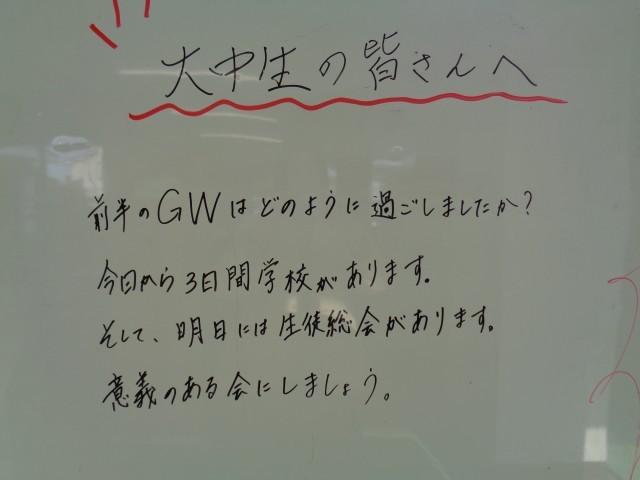 大中生の皆さんへ
前半のGWはどのように過ごしましたか?
今日から3日間学校があります。
そして、明日には生徒総会があります。
意義のある会にしましょう。